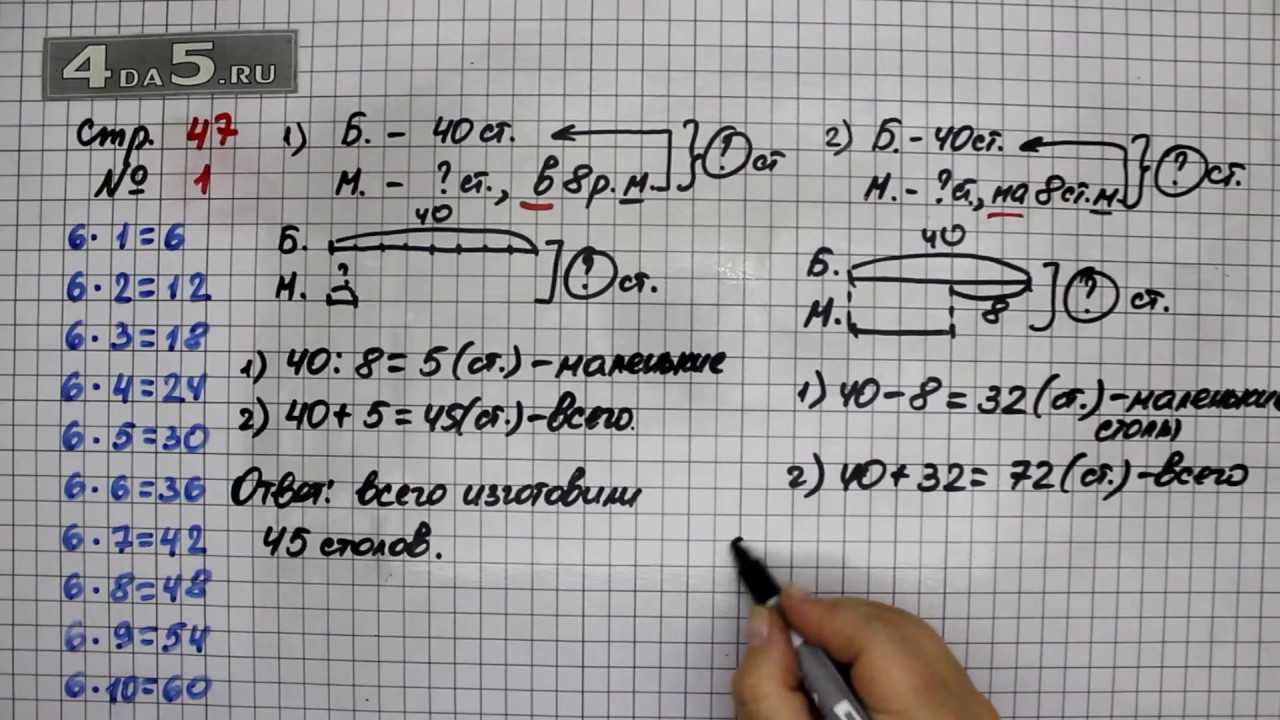 4DA5.RU
Стр. 47
№ 1
6·1=6
6·2=12
6·3=18
6·4=24
6·5=30
6·6=36
6·7=42
6·8=48
6·9=54
6·10=60
1) Б. - 40 ст.
М. - ? ст., в 8 р. м.
? ст
40
Б.
М. ?
? ст.
1) 40 : 8 = 5 (ст.) - маленькие
2) 40 + 5 = 45 (ст.) - всего.
Ответ: всего изготовили
45 столов.
2) Б. - 40 ст.
М. - ? ст., на 8 ст. м.
? ст.
40
Б.
М. 8
? ст.
1) 40 - 8 = 32 (ст.) - маленькие
столы
2) 40 + 32 = 72 (ст.) - всего